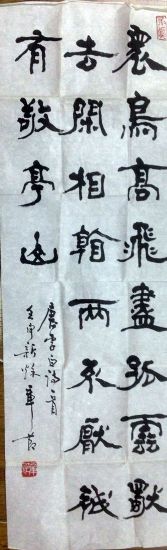 眾鳥高飛盡孤雲獨
去閑相看兩不厭祇
有敬亭山
唐李白詩一首
壬申新秋